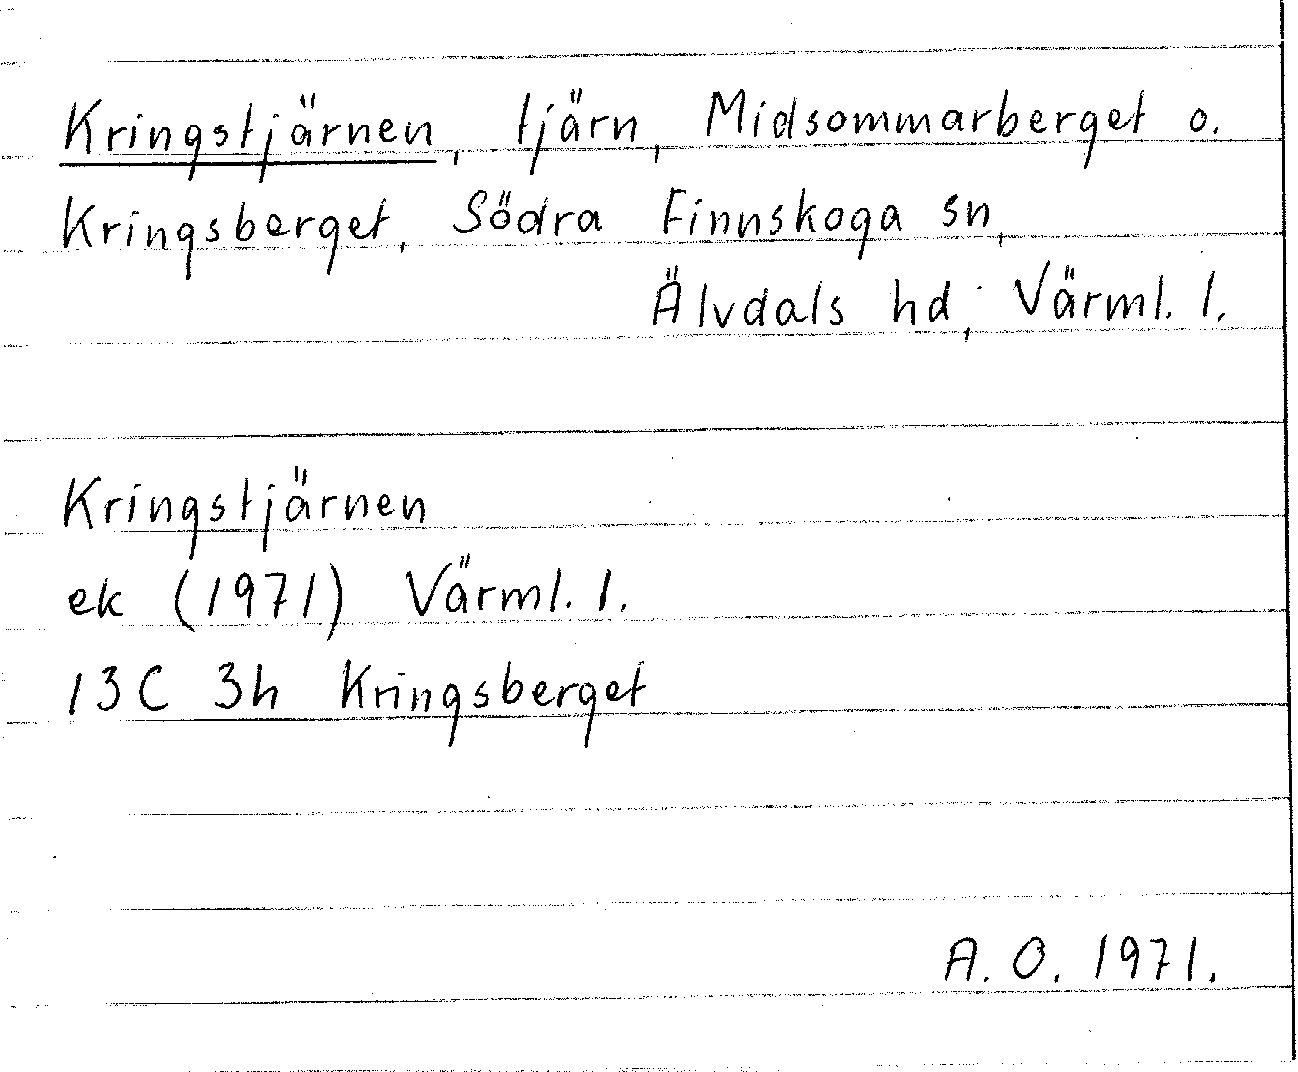 Kringstjärnen, tjärn, Midsommarberget o.
Kringsberget, Södra Finnskoga sn,
Älvdals hd, Värml. l.
Kringstjärnen
ek (1971) Värml. l.
13C 3h Kringsberget
A. O. 1971.